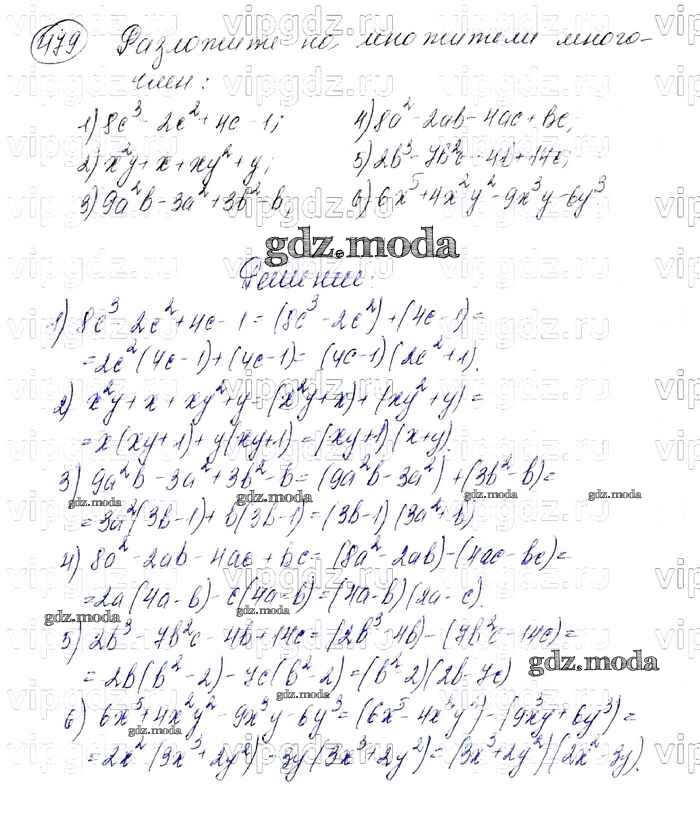 479 Разложите на множители много-
член:
1) 8c³ - 2c² + 4c - 1; 4) 8a² - 2ab - 4ac + bc;
2) x²y + x + xy² + y; 5) 2b³ - 7b²c - 4b + 14c;
3) 9a²b - 3a² + 3b² - b; 6) 6x⁵ + 4x²y² - 9x³y - 6y³
gdz.moda
Решение:
1) 8c³ - 2c² + 4c - 1 = (8c³ - 2c²) + (4c - 1) =
= 2c²(4c - 1) + (4c - 1) = (4c - 1)(2c² + 1).
2) x²y + x + xy² + y = (x²y + x) + (xy² + y) =
= x(xy + 1) + y(xy + 1) = (xy + 1)(x + y).
3) 9a²b - 3a² + 3b² - b = (9a²b - 3a²) + (3b² - b) =
= 3a²(3b - 1) + b(3b - 1) = (3b - 1)(3a² + b)
4) 8a² - 2ab - 4ac + bc = (8a² - 2ab) - (4ac - bc) =
= 2a(4a - b) - c(4a - b) = (4a - b)(2a - c).
5) 2b³ - 7b²c - 4b + 14c = (2b³ - 4b) - (7b²c - 14c) =
= 2b(b² - 2) - 7c(b² - 2) = (b² - 2)(2b - 7c)
gdz.moda
6) 6x⁵ + 4x²y² - 9x³y - 6y³ = (6x⁵ - 4x²y²) - (9x³y + 6y³) =
= 2x²(3x³ + 2y²) - 3y(3x³ + 2y²) = (3x³ + 2y²)(2x² - 3y).